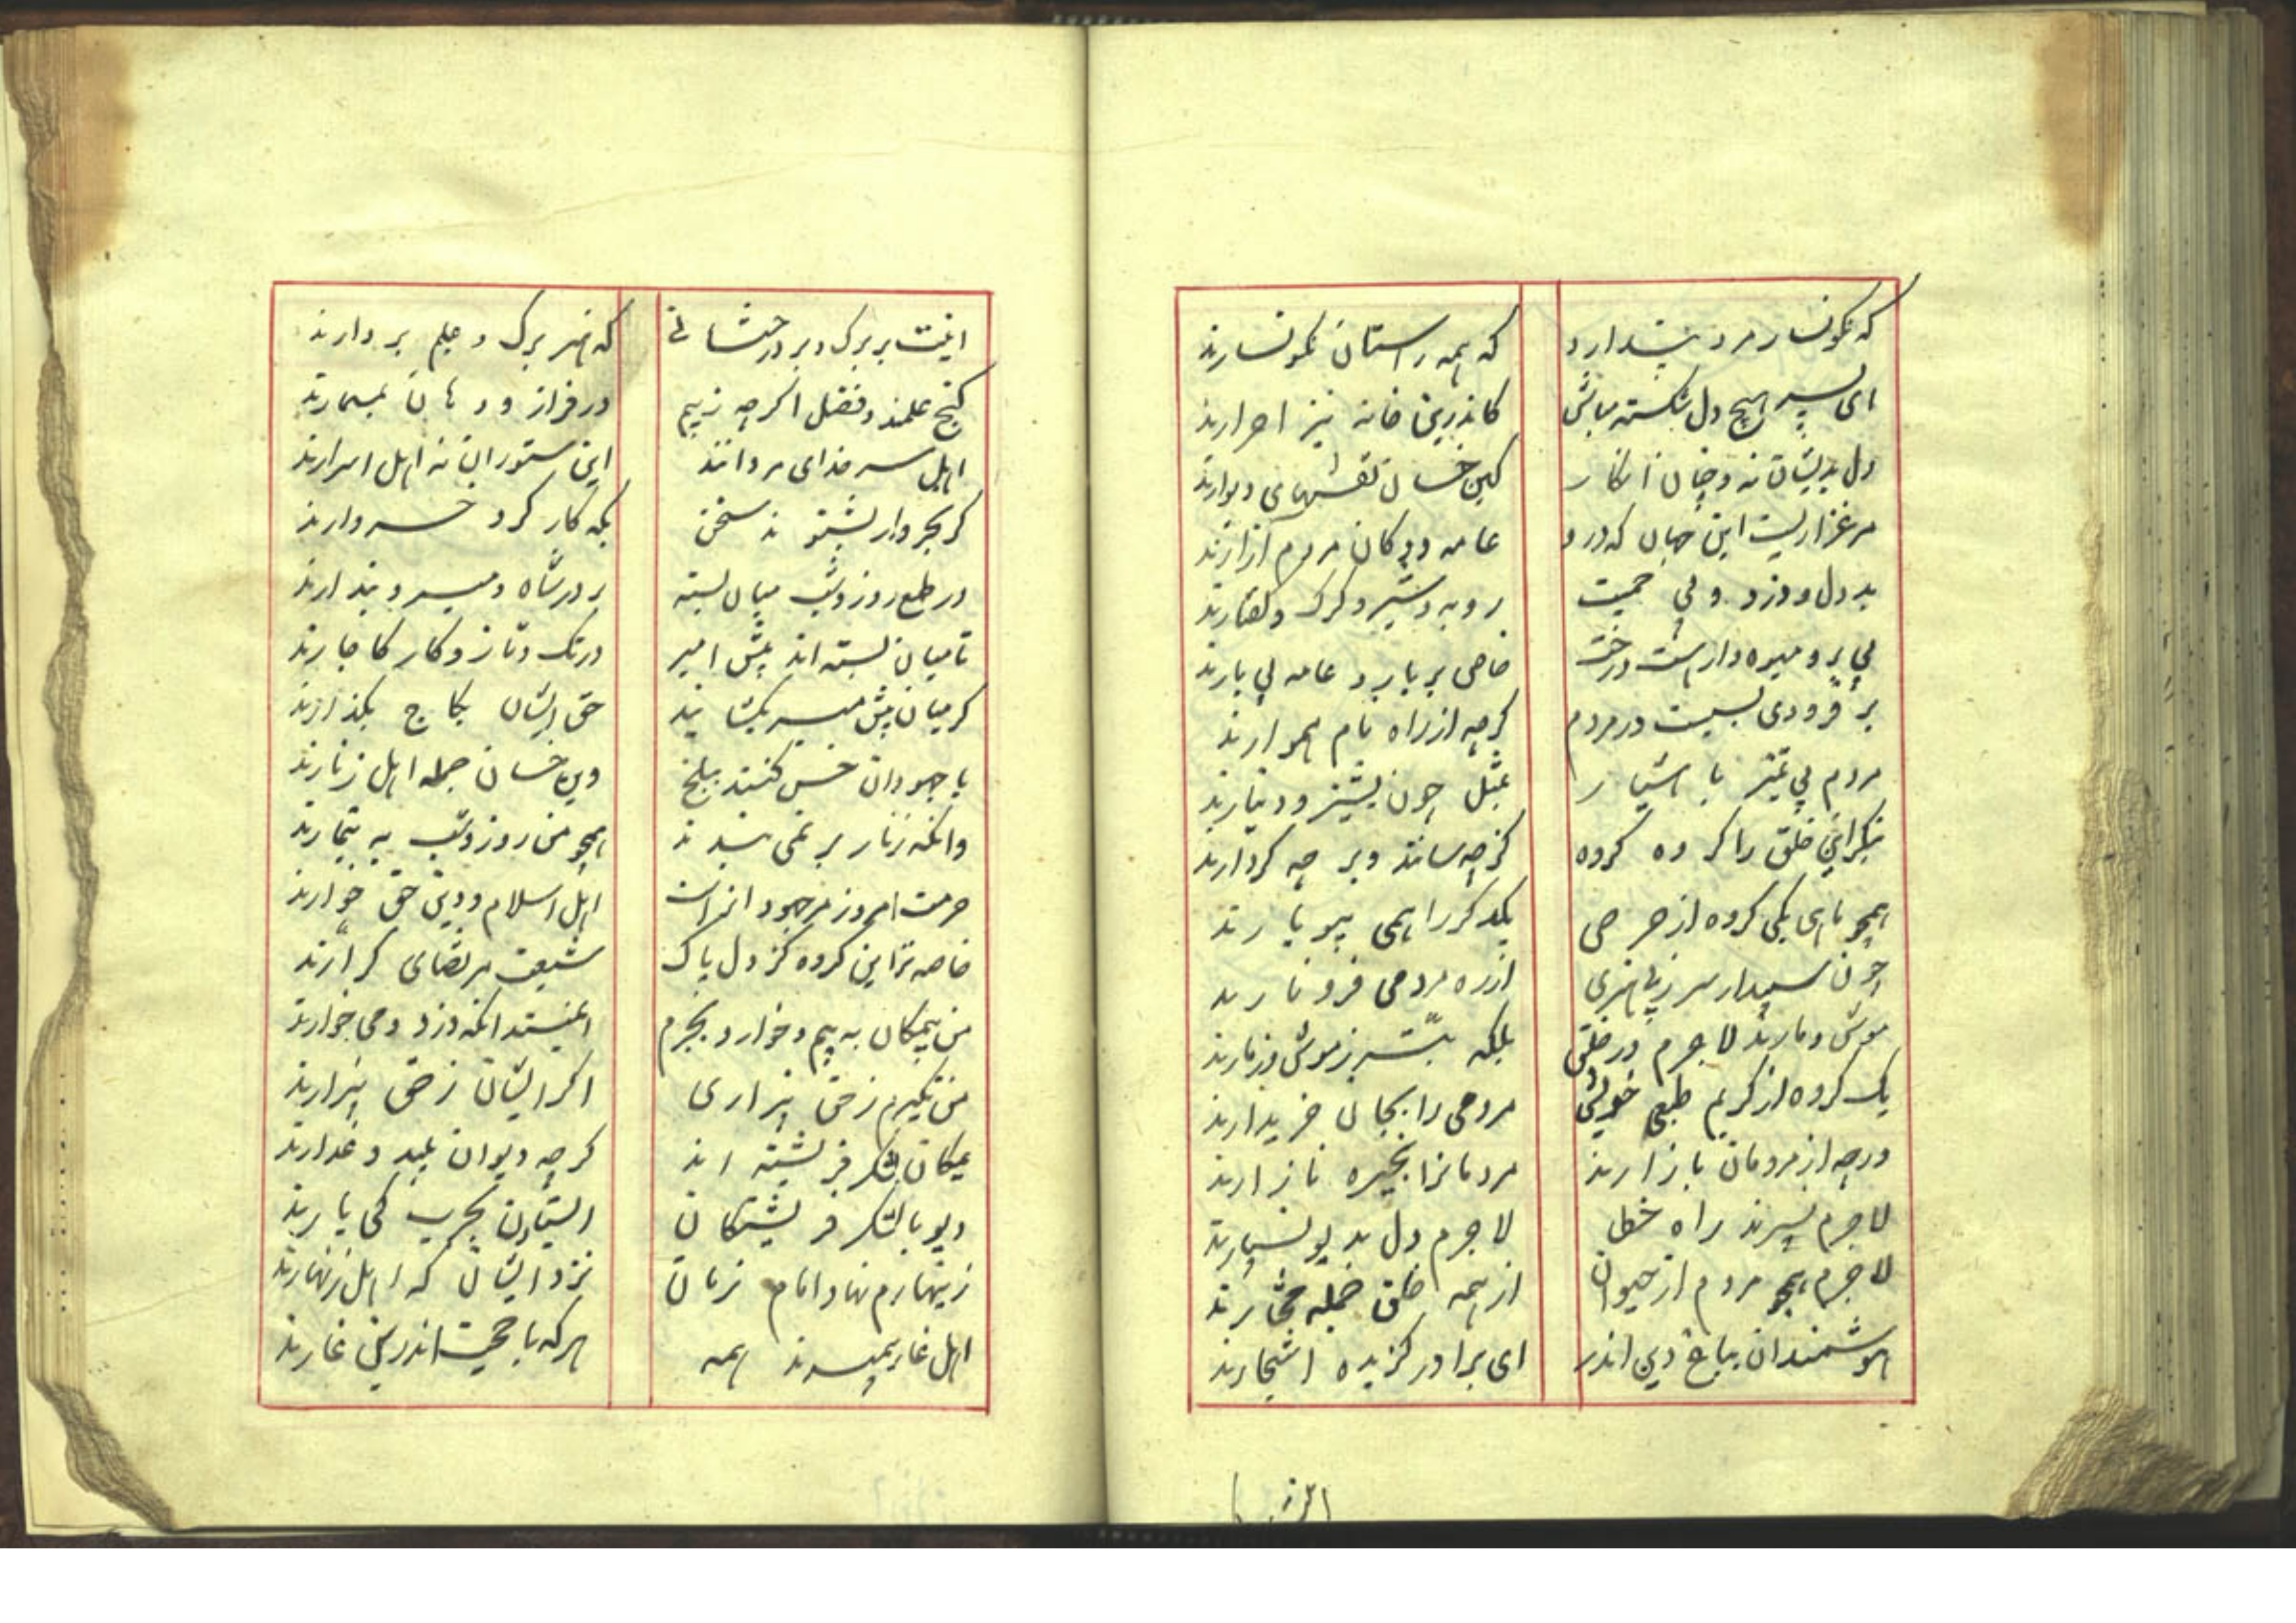 که نکونسار مرد پندارد که همه راستان نکونسارند
ای پسر هیچ دل شکسته مباش کاندرین خانه نیز احرارند
دل بدیشان نه و چنان انکار کین خسان نقشهای دیوارند
مرغزاریست این جهان که درو عامه ددکان مردم آزارند
بد دل و دزد و بی حمیت روبه و شیر و کرک و کفتارند
بی بر و میوه دار هست درخت خاص پر بار و عامه بی بارند
بر فرودی بسیست در مردم کرچه از راه نام هموارند
مردم بی تمیز با هشیار بمثل چون پشیز و دینارند
بنکر این خلق را کروه کروه کز چه سانند و بر چه کردارند
همچو ماهی یکی کروه از حرص یکدکر را همی بیوبارند
چون سپیدار سر ز بی هنری از ره مردمی فرو نارند
موش و مارند لاجرم در خلق بلکه بتر ز موش وز مارند
یک کروه از کریم طبعی خویش مردمی را بجان خریدارند
ورچه از مردمان بازارند مردمانرا بخیره نازارند
لاجرم نسپرند راه خطا لاجرم دل بدیو نسپارند
لاجرم همچو مردم از حیوان از همه خلق جمله مختارند
هوشمندان بباغ دین اندر ای برادر کزیده اشجارند
اینت
اینت پر برک و بر درختانی که هنر برک و علم بر دارند
کنج علمند و فضل اکرچه ز بیم در فراز و دهان بمسمارند
اهل سر خدای مردانند این ستوران نه اهل اسرارند
کر بخروار بشنوند سخن بکه کار کرد خروارند
در طمع روز و شب میان بسته بر در شاه و میر و بندارند
تا میان بسته اند پیش امیر در تک و تاز و کار کاچارند
کر میان پیش میر بکشایند حق ایشان بکاج بکذارند
با جهودان خس کنند ببلخ وین خسان جمله اهل زنارند
وانکه زنار بر نمی بندند همچو من روز و شب به تیمارند
حرمت امروز مر جهودانراست اهل اسلام و دین حق خوارند
خاصه تر این کروه کز دل پاک شیعت مرتضای کرارند
من بیمکان به بیم و خوار و بجرم ایمنند انکه دزد و می خوارند
من نکیرم ز حق بیزاری اکر ایشان ز حق بیزارند
یمکان لشکر فریشته اند کرچه دیوان پلید و غدارند
دیو با لشکر فریشتکان ایستادن بحرب کی یارند
زینهارم نهاد امام زمان نزد ایشان که اهل زنهارند
اهل غار پیمبرند همه هر که با حجت اندرین غارند